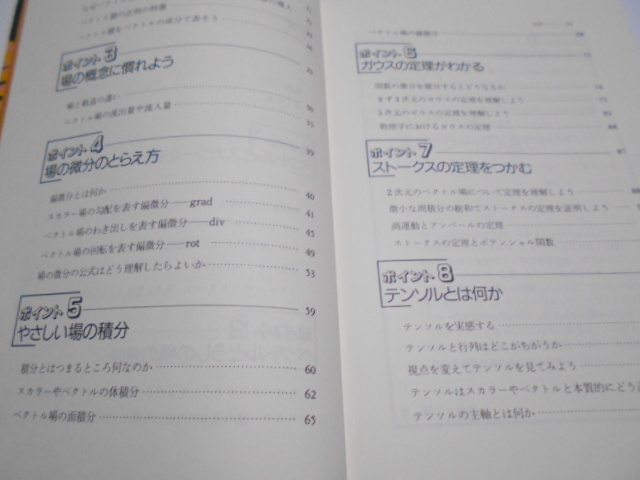 ベクトル積の法則の特徴
ベクトル積をベクトルの成分で表そう
ポイント3
場の概念に慣れよう 29
場と軌道の違い 30
ベクトル場の流出量や流入量 31
ポイント4
場の微分のとらえ方 39
偏微分とは何か 40
スカラー場の勾配を表す偏微分——grad 41
ベクトル場のわき出しを表す偏微分——div 45
ベクトル場の回転を表す偏微分——rot 49
場の微分の公式はどう理解したらよいか 53
ポイント5
やさしい場の積分 59
積分とはつまるところ何なのか 60
スカラーやベクトルの体積分 62
ベクトル場の面積分 65
ベクトル場の線積分 68
ポイント6
ガウスの定理がわかる
関数の微分を積分するとどうなるか
まず2次元のガウスの定理を理解しよう 75
3次元のガウスの定理を理解しよう
物理学におけるガウスの定理
ポイント7
ストークスの定理をつかむ
2次元のベクトル場について定理を理解しよう
微小な面積分の総和でストークスの定理を証明しよう
渦運動とアンペールの定理
ストークスの定理とポテンシャル関数
ポイント8
テンソルとは何か
テンソルを実感する
テンソルと行列はどこがちがうか
視点を変えてテンソルを見てみよう
テンソルはスカラーやベクトルと本質的にどう
テンソルの主軸とは何か